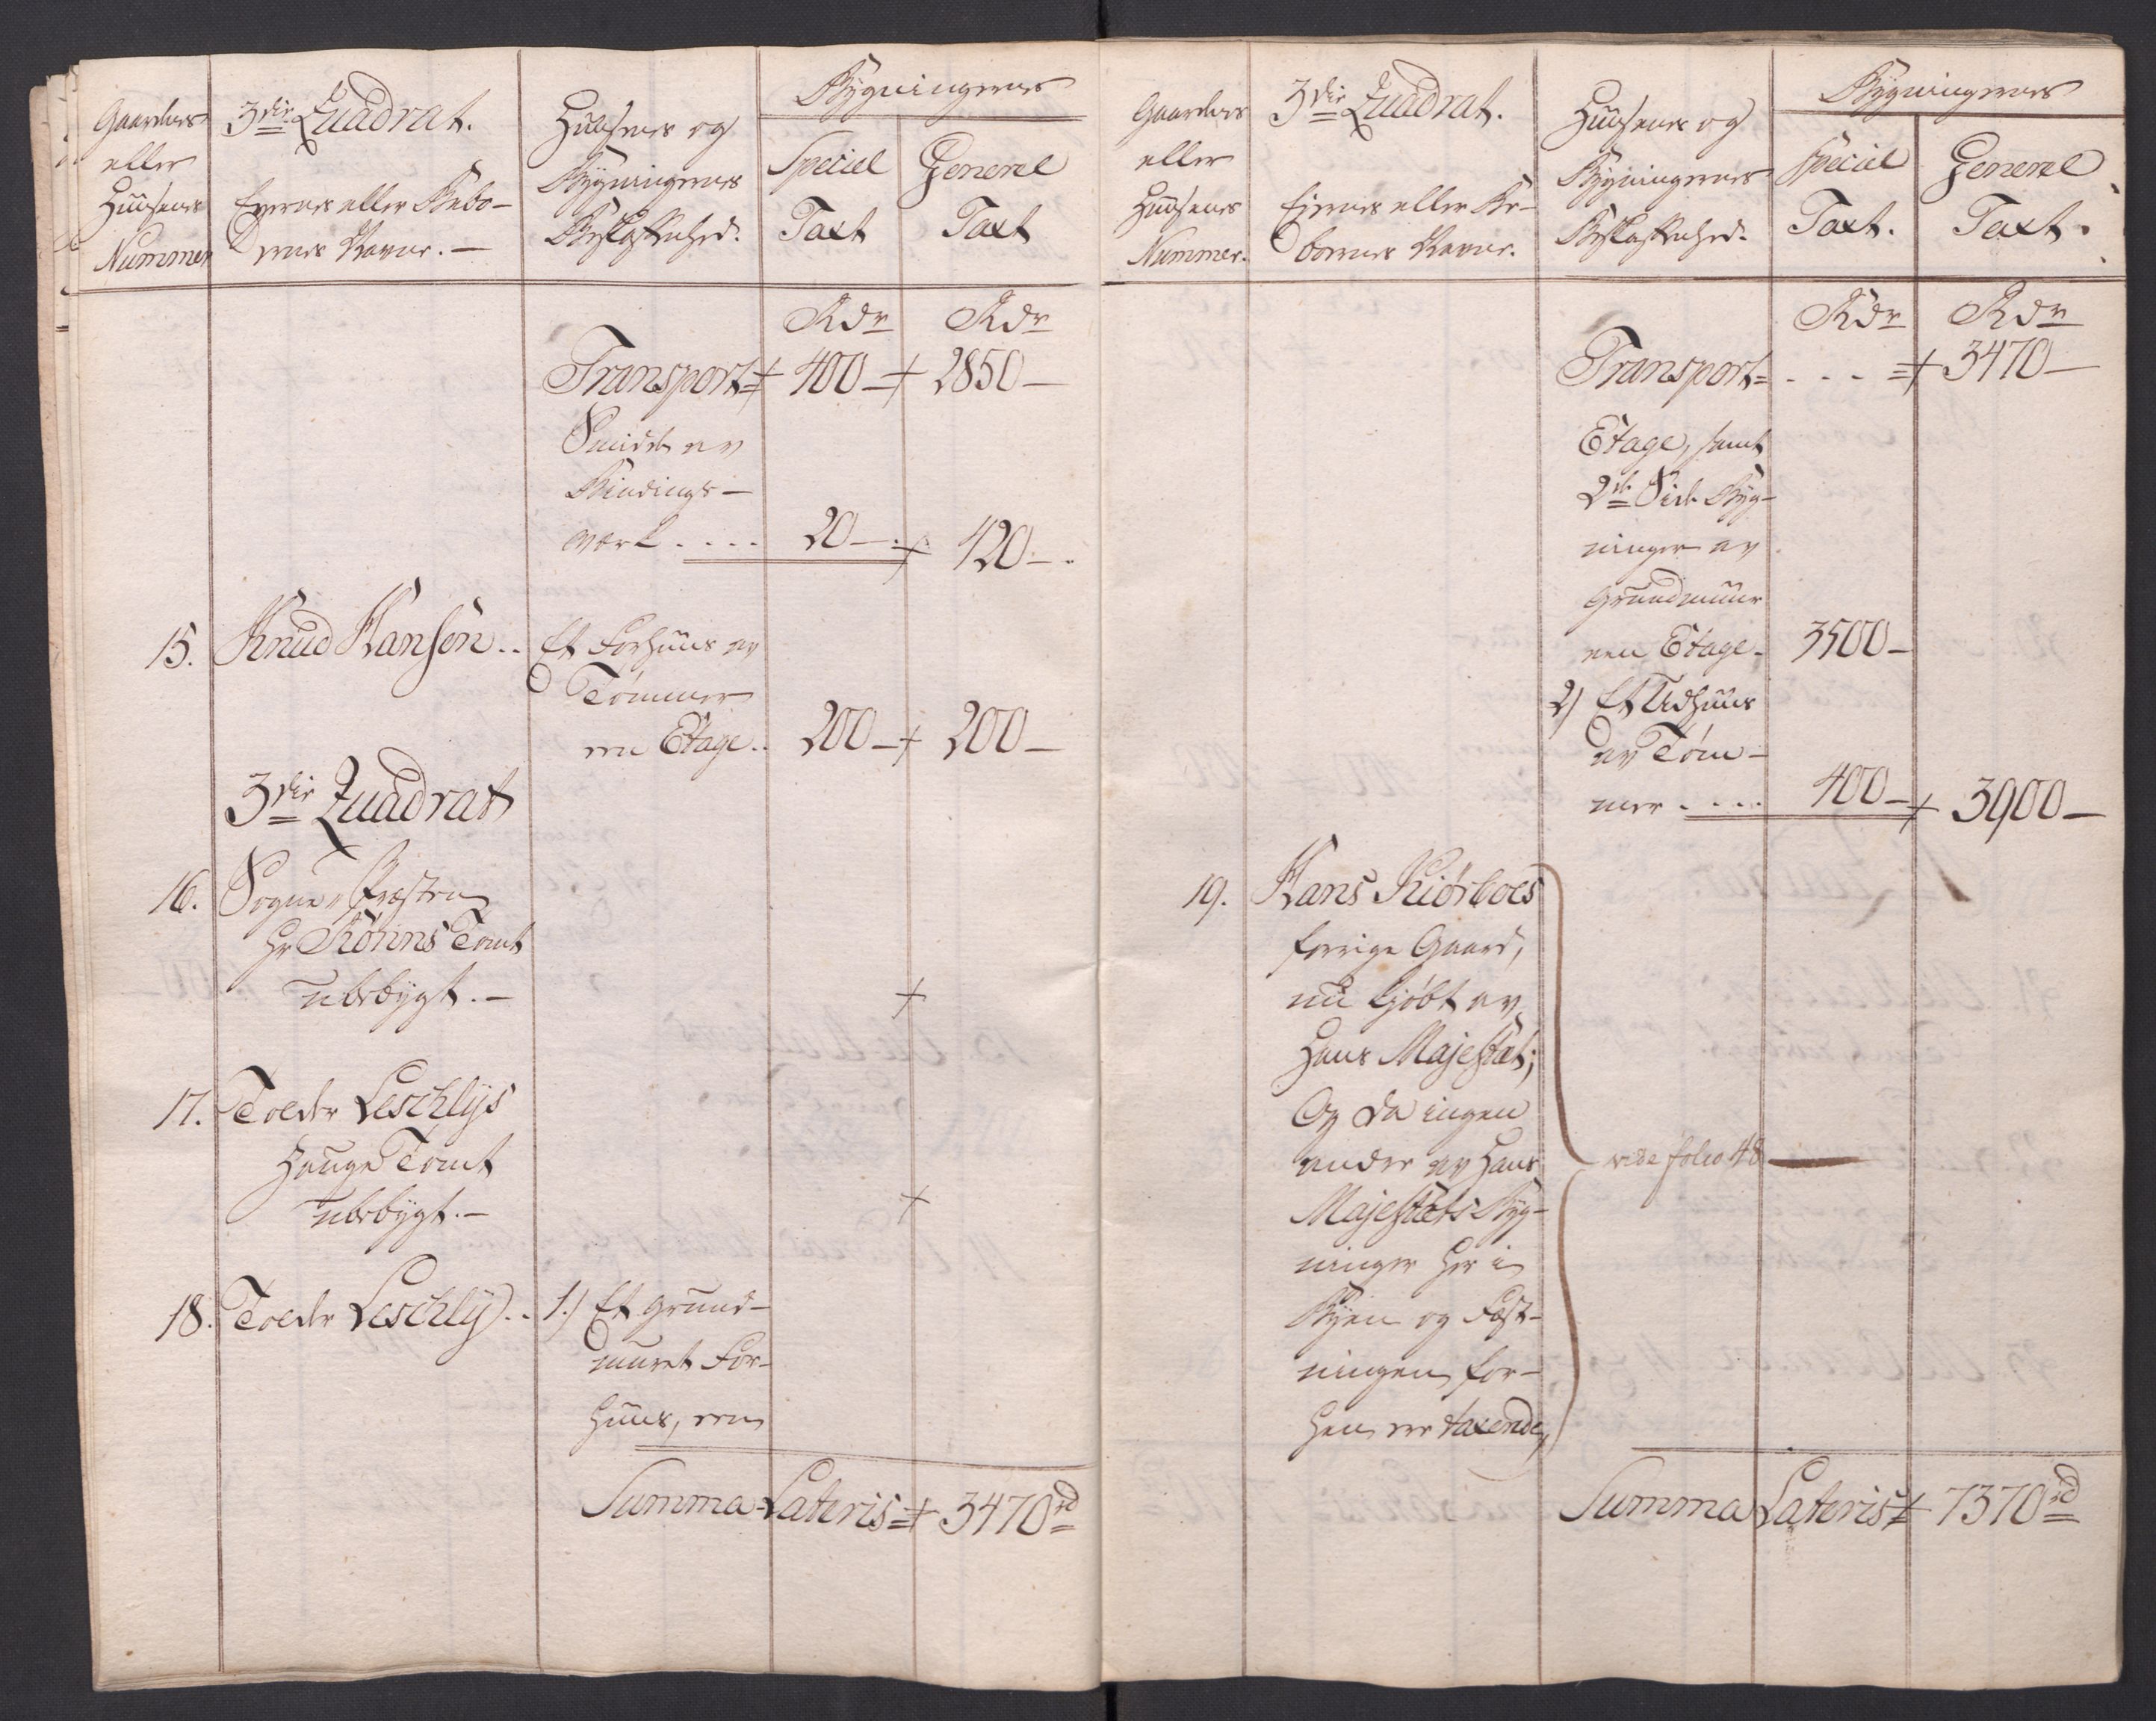 Gaardenes
eller
Huusenes
Nummer
3die Quadrat.
Eyernes eller Bebo-
ernes Navne. —
Huusenes og
Bygningernes
Beskaffenhed.
Bygningernes
Speciel
Taxt
General
Taxt
Rdr Rdr
Transport 400 — 2850 —
Smidde av
Bindings-
værk . . . . 20 — 420 —
15. Knud Hansen . . Et Forhuus av
Tømmer
een Etage . . 200 — 200 —
3die Quadrat
16. Sogne Præsten
Hr Rønns Tomt
ubebygt. —
17. Tolder Leschlys
Hauge Tomt
ubebygt. —
18. Tolder Leschly . . 1.) Et grund-
muret For-
huus, een
Summa Lateris 3470 rd
Gaardenes
eller
Huusenes
Nummer.
3die Quadrat.
Eiernes eller Be-
boernes Navne.
Huusenes og
Bygningernes
Beskaffenhed.
Bygningernes
Speciel
Taxt.
General
Taxt.
Rdr Rdr
Transport . . . 3470 —
Etage, samt
2de Side Byg-
ninger av
Grundmuur
een Etage. 3500 —
2) Et Udhuus
av Tøm-
mer . . . . 400 — 3900 —
19. Hans Kiørboes
forrige Gaard,
nu kjøbt av
Hans Majestæt;
Og da ingen
andre av Hans
Majestæts Byg-
ninger her i
Byen og Fæst-
ningen for-
hen ere taxerede,
vide folio 48 —
Summa Lateris 7370 rd